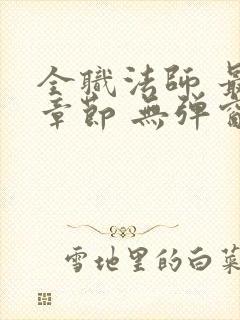 全職法師 最
章節 無彈窗
雪地里的白菜